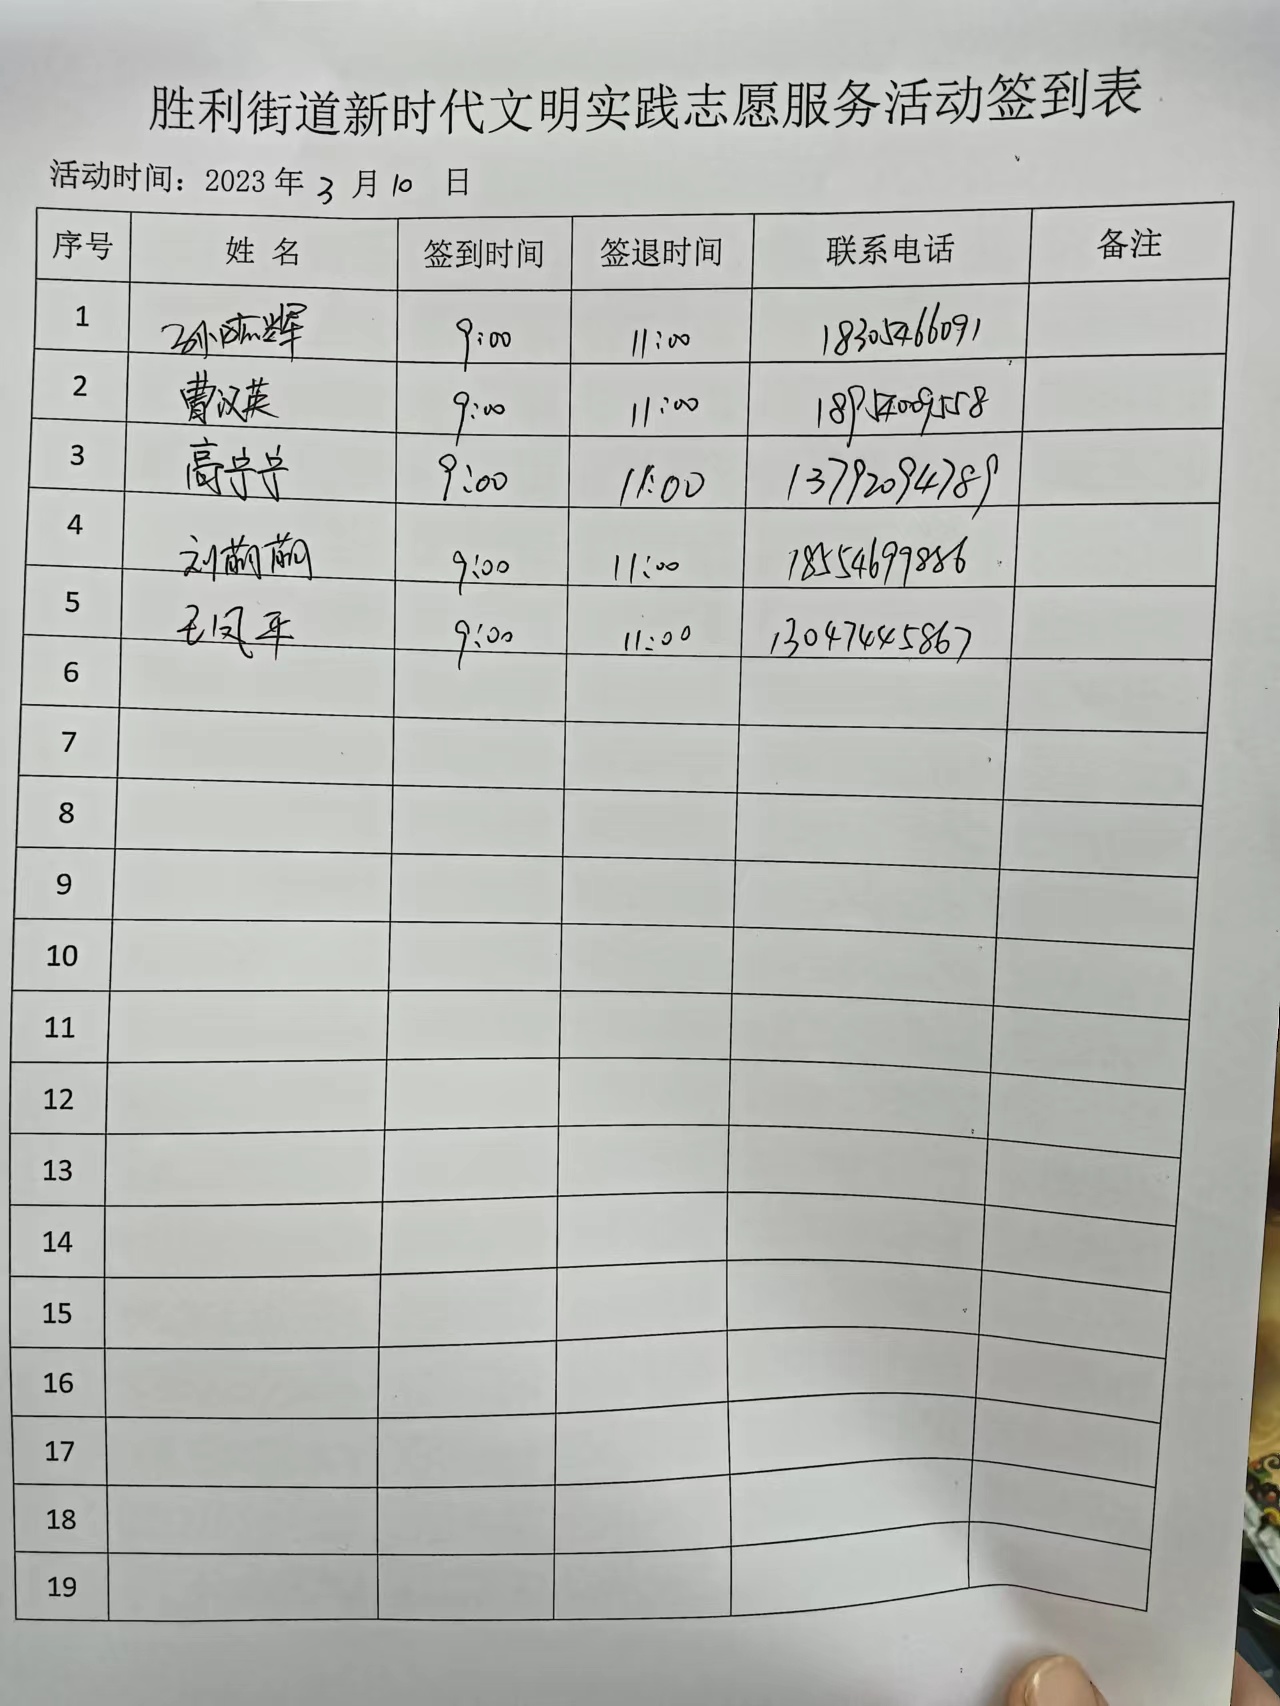 胜利街道新时代文明实践志愿服务活动签到表
活动时间：2023 年 3 月 10 日
序号 姓 名 签到时间 签退时间 联系电话 备注
1 9:00 11:00 18305466091
2 曹汉英 9:00 11:00 18954009558
3 高宁宁 9:00 11:00 13792094789
4 刘萌萌 9:00 11:00 18554699886
5 王凤平 9:00 11:00 13047445867
6
7
8
9
10
11
12
13
14
15
16
17
18
19